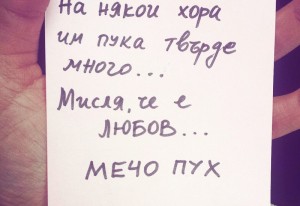 На някои хора
им пука твърде
много...
Мисля, че е
ЛЮБОВ...
МЕЧО ПУХ